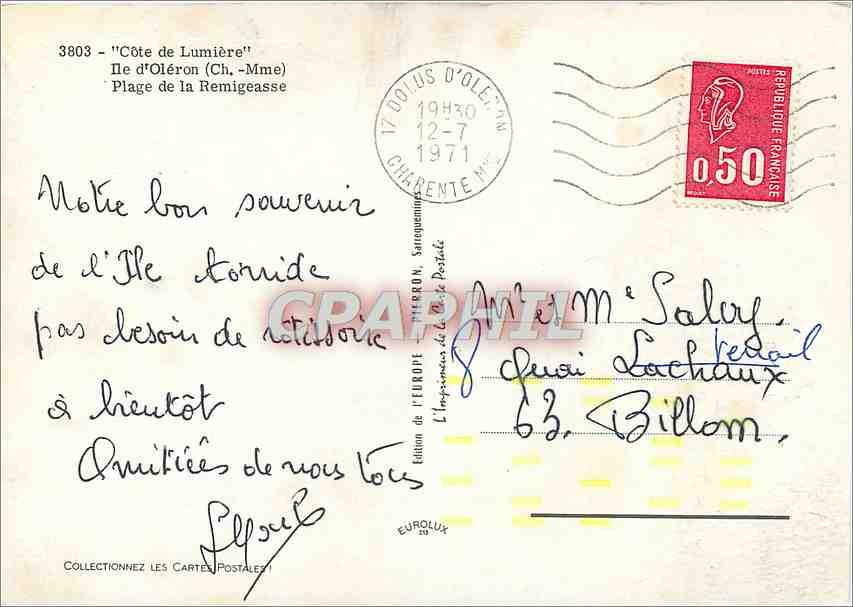 3803 - "Côte de Lumière"
Ile d'Oléron (Ch. -Mme)
Plage de la Remigeasse
17 DOLUS D'OLERON
19H30
12-7
1971
CHARENTE MME
POSTES
REPUBLIQUE FRANÇAISE
0,50
Notre bon souvenir
de l'Ile torride
pas besoin de rotissoire
à bientôt
Amitiées de nous tous
Edition de l'EUROPE - PIERRON, Sarreguemines
L'Imprimeur de la Carte Postale
CPARPHIL
Mr et Me Saloy.
8 Quai Lachaux
Terrail
63. Billom.
EUROLUX
COLLECTIONNEZ LES CARTES POSTALES !